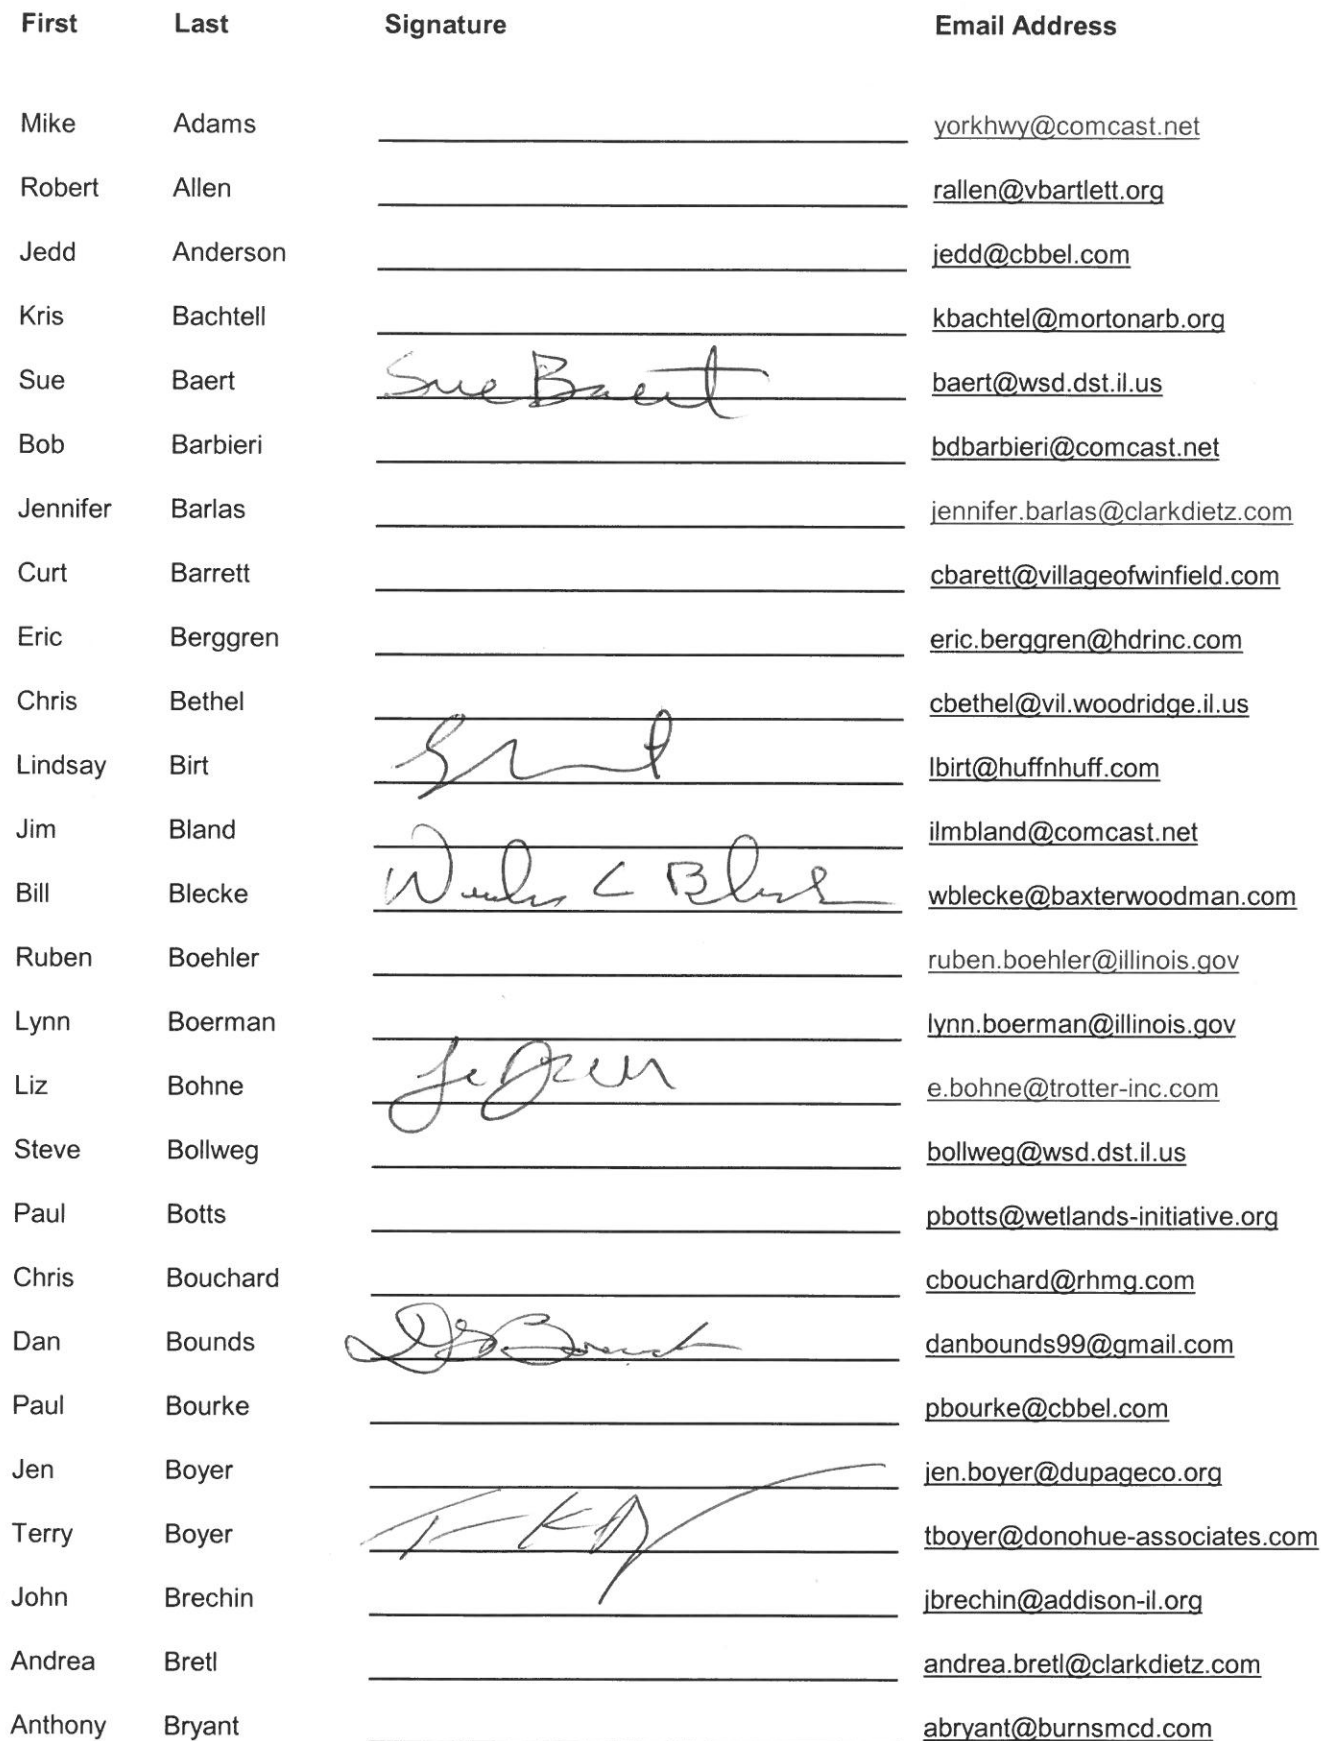 First Last Signature Email Address
Mike Adams yorkhwy@comcast.net
Robert Allen rallen@vbartlett.org
Jedd Anderson jedd@cbbel.com
Kris Bachtell kbachtel@mortonarb.org
Sue Baert Sue Baert baert@wsd.dst.il.us
Bob Barbieri bdbarbieri@comcast.net
Jennifer Barlas jennifer.barlas@clarkdietz.com
Curt Barrett cbarett@villageofwinfield.com
Eric Berggren eric.berggren@hdrinc.com
Chris Bethel cbethel@vil.woodridge.il.us
Lindsay Birt lbirt@huffnhuff.com
Jim Bland ilmbland@comcast.net
Bill Blecke wblecke@baxterwoodman.com
Ruben Boehler ruben.boehler@illinois.gov
Lynn Boerman lynn.boerman@illinois.gov
Liz Bohne e.bohne@trotter-inc.com
Steve Bollweg bollweg@wsd.dst.il.us
Paul Botts pbotts@wetlands-initiative.org
Chris Bouchard cbouchard@rhmg.com
Dan Bounds danbounds99@gmail.com
Paul Bourke pbourke@cbbel.com
Jen Boyer jen.boyer@dupageco.org
Terry Boyer tboyer@donohue-associates.com
John Brechin jbrechin@addison-il.org
Andrea Bretl andrea.bretl@clarkdietz.com
Anthony Bryant abryant@burnsmcd.com